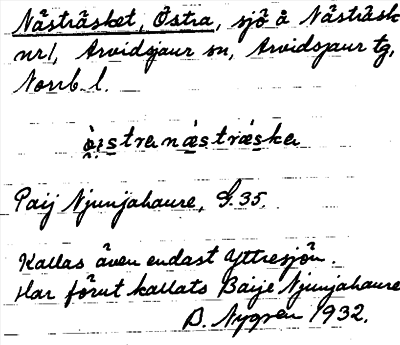 Nästräsket, Östra, sjö å Nästräsk
nr 1, Arvidsjaur sn, Arvidsjaur tg,
Norrb. l.
Paij Njunjahaure, G. 35.
Kallas även endast Yttresjön.
Har förut kallats Baije Njunjahaure
B. Nygren 1932.